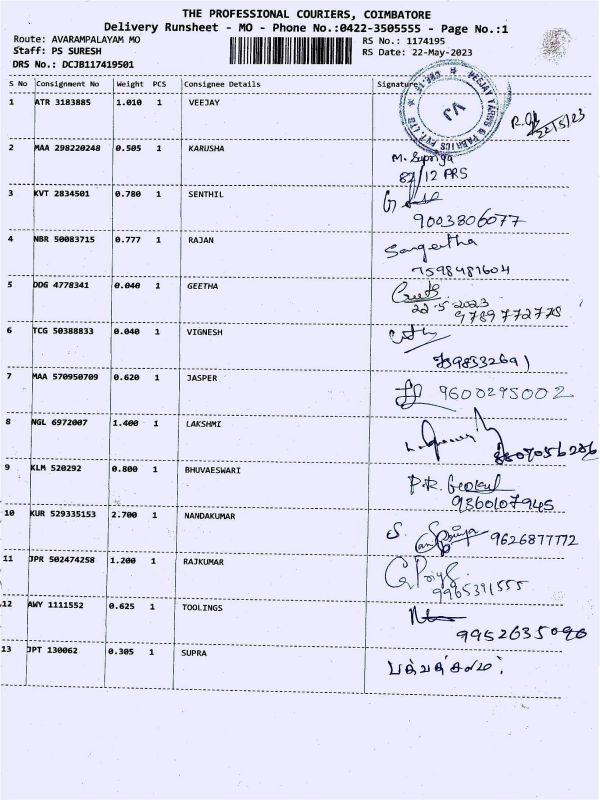 THE PROFESSIONAL COURIERS, COIMBATORE
Delivery Runsheet - MO - Phone No.:0422-3505555 - Page No.:1
Route: AVARAMPALAYAM MO RS No.: 1174195
Staff: PS SURESH RS Date: 22-May-2023
DRS No.: DCJB117419501
S No Consignment No Weight PCS Consignee Details Signature
1 ATR 3183885 1.010 1 VEEJAY
VEEJAY YARNS & FABRICS PVT. LTD CBE-15
VJ
22/5/23
2 MAA 298220248 0.505 1 KARUSHA
M. Supriya
82/12 ARS
3 KVT 2834501 0.780 1 SENTHIL
9003806077
4 NBR 50083715 0.777 1 RAJAN
Sangeetha
7598481604
5 DDG 4778341 0.040 1 GEETHA
22-5-2023
9789772778
6 TCG 50388833 0.040 1 VIGNESH
7 MAA 570950709 0.620 1 JASPER
9600295002
8 NGL 6972007 1.400 1 LAKSHMI
9 KLM 520292 0.800 1 BHUVAESWARI
P.R. Gokul
9360107945
10 KUR 529335153 2.700 1 NANDAKUMAR
S.
9626877772
11 JPR 502474258 1.200 1 RAJKUMAR
9965391555
12 AWY 1111552 0.625 1 TOOLINGS
13 JPT 130062 0.305 1 SUPRA